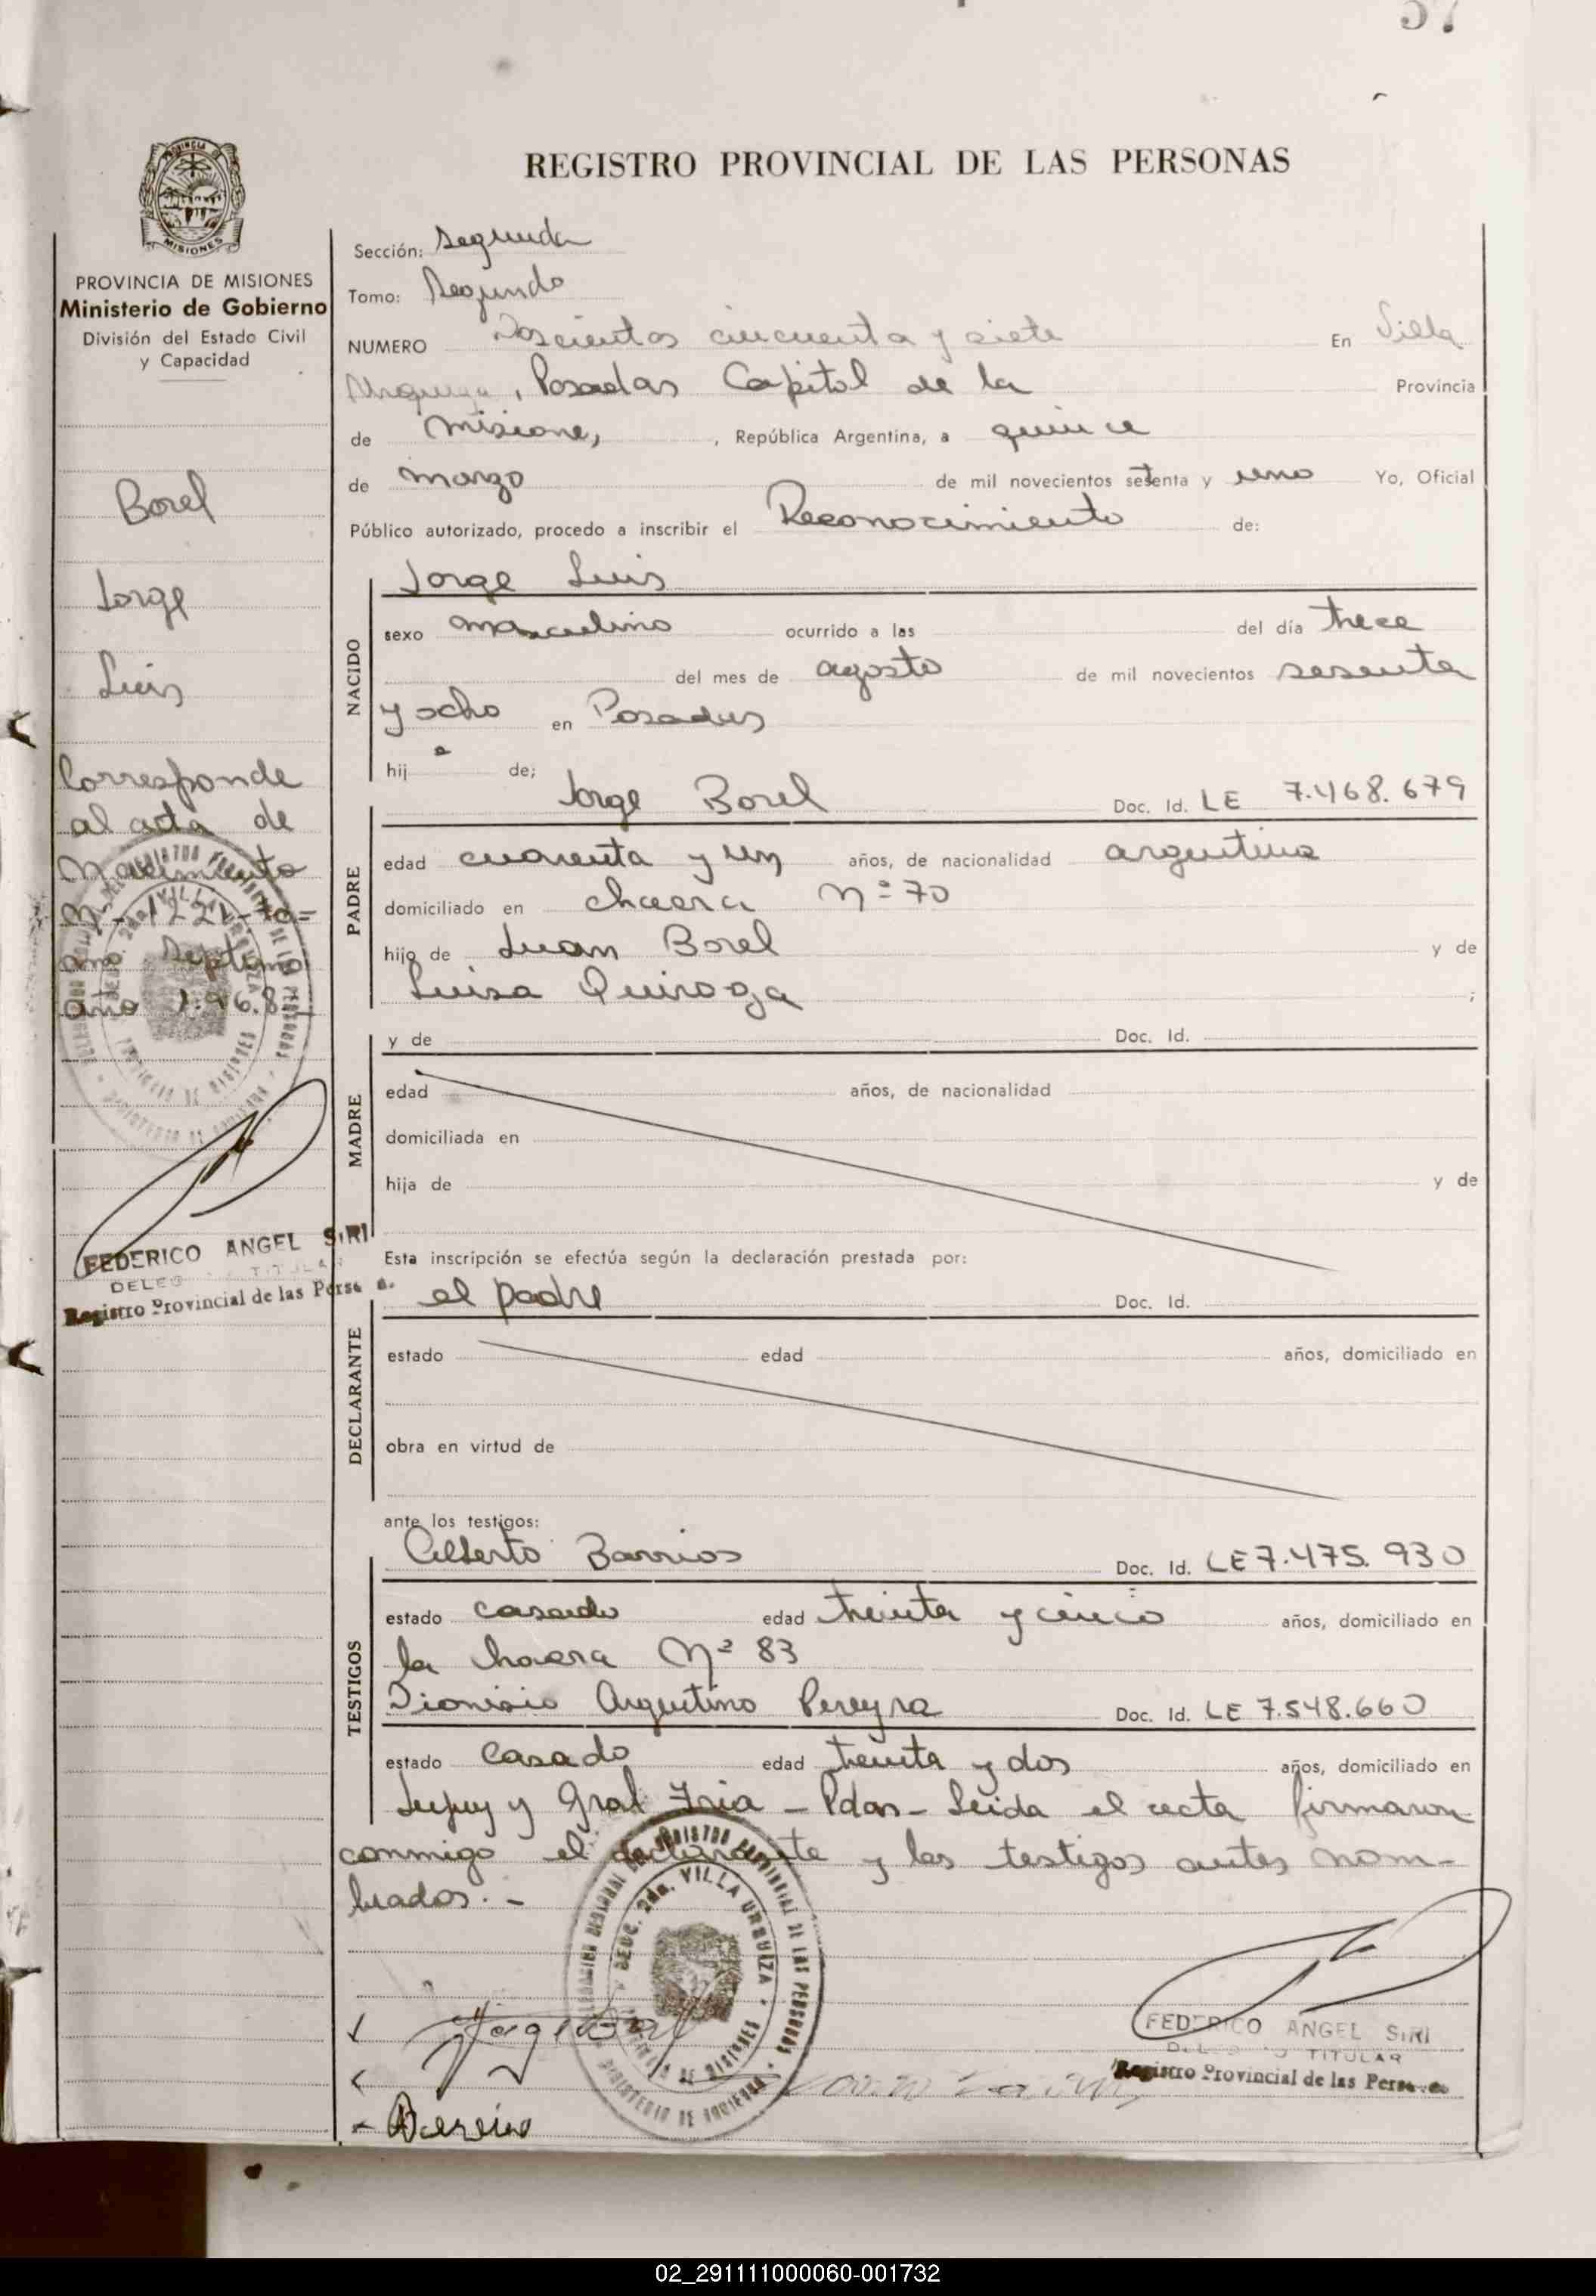 57
REGISTRO PROVINCIAL DE LAS PERSONAS
PROVINCIA DE MISIONES
Ministerio de Gobierno
División del Estado Civil
y Capacidad
Borel
Jorge
Luis
Corresponde
al acta de
Nacimiento
Nº-1221-70=
ano Septimo
año 1.968.-
FEDERICO ANGEL SIRI
TITULAR
Registro Provincial de las Pers
Sección: Segunda
Tomo: Segundo
NUMERO Doscientos cincuenta y siete En Villa
Urquiza, Posadas Capital de la Provincia
de Misiones, , República Argentina, a quince
de marzo de mil novecientos setenta y uno Yo, Oficial
Público autorizado, procedo a inscribir el Reconocimiento de:
NACIDO
Jorge Luis
sexo masculino ocurrido a las del día trece
del mes de agosto de mil novecientos sesenta
y ocho en Posadas
hij o de;
PADRE
Jorge Borel Doc. Id. LE 7.468.679
edad cuarenta y un años, de nacionalidad argentina
domiciliado en chacra Nº 70
hijo de Juan Borel y de
Luisa Quiroga ;
MADRE
y de Doc. Id.
edad años, de nacionalidad
domiciliada en
hija de y de
Esta inscripción se efectúa según la declaración prestada por:
DECLARANTE
el padre Doc. Id.
estado edad años, domiciliado en
obra en virtud de
ante los testigos:
TESTIGOS
Alberto Barrios Doc. Id. LE 7.475.930
estado casado edad treinta y cinco años, domiciliado en
la chacra Nº 83
Dionisio Argentino Pereyra Doc. Id. LE 7.548.660
estado casado edad treinta y dos años, domiciliado en
Jujuy y Gral - Pdas - Leida el acta firmaron
conmigo el declarante y los testigos antes nom-
brados. -
SECC. 2da. VILLA URQUIZA
PROVINCIA DE MISIONES
FEDERICO ANGEL SIRI
TITULAR
Registro Provincial de las Pers
02_291111000060-001732